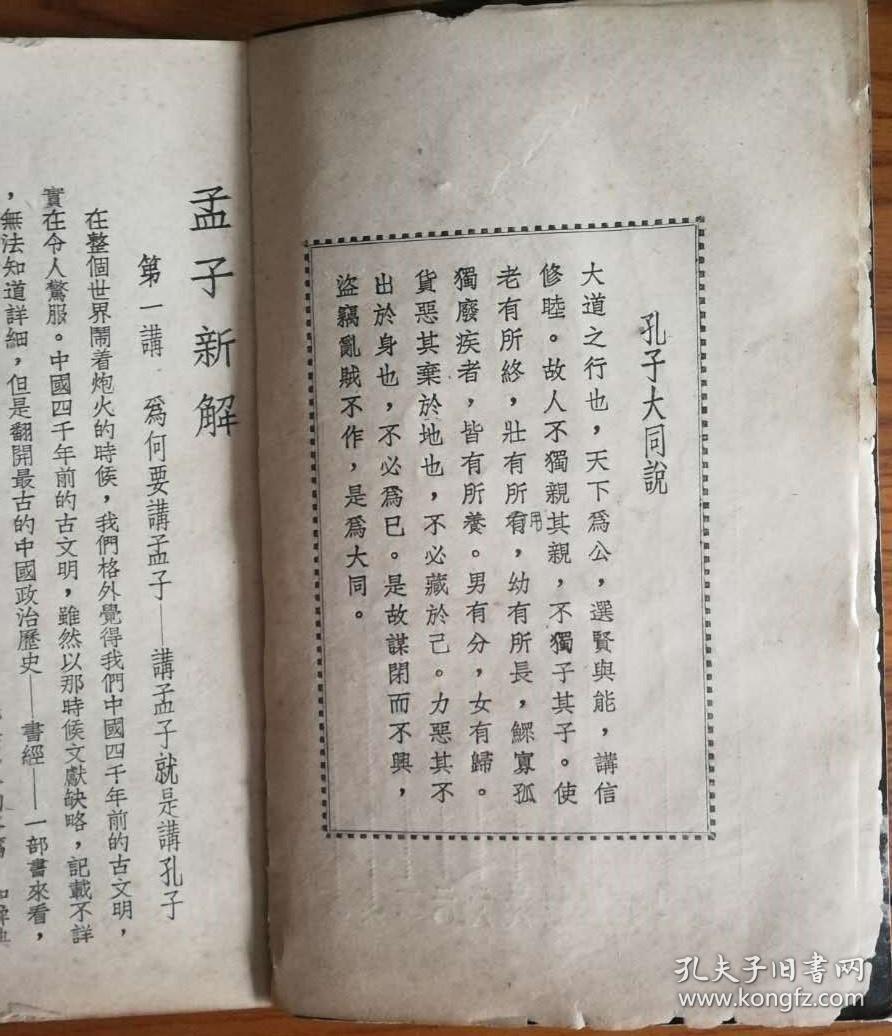 孔子大同說
大道之行也，天下爲公，選賢與能，講信
修睦。故人不獨親其親，不獨子其子。使
老有所終，壯有所有，幼有所長，鰥寡孤
用
獨廢疾者，皆有所養。男有分，女有歸。
貨惡其棄於地也，不必藏於己。力惡其不
出於身也，不必爲已。是故謀閉而不興，
盜竊亂賊不作，是爲大同。
孟子新解
第一講 爲何要講孟子——講孟子就是講孔子
在整個世界鬧着炮火的時候，我們格外覺得我們中國四千年前的古文明，
實在令人驚服。中國四千年前的古文明，雖然以那時候文獻缺略，記載不詳
，無法知道詳細，但是翻開最古的中國政治歷史——書經——一部書來看，
孔夫子旧书网
www.kongfz.com